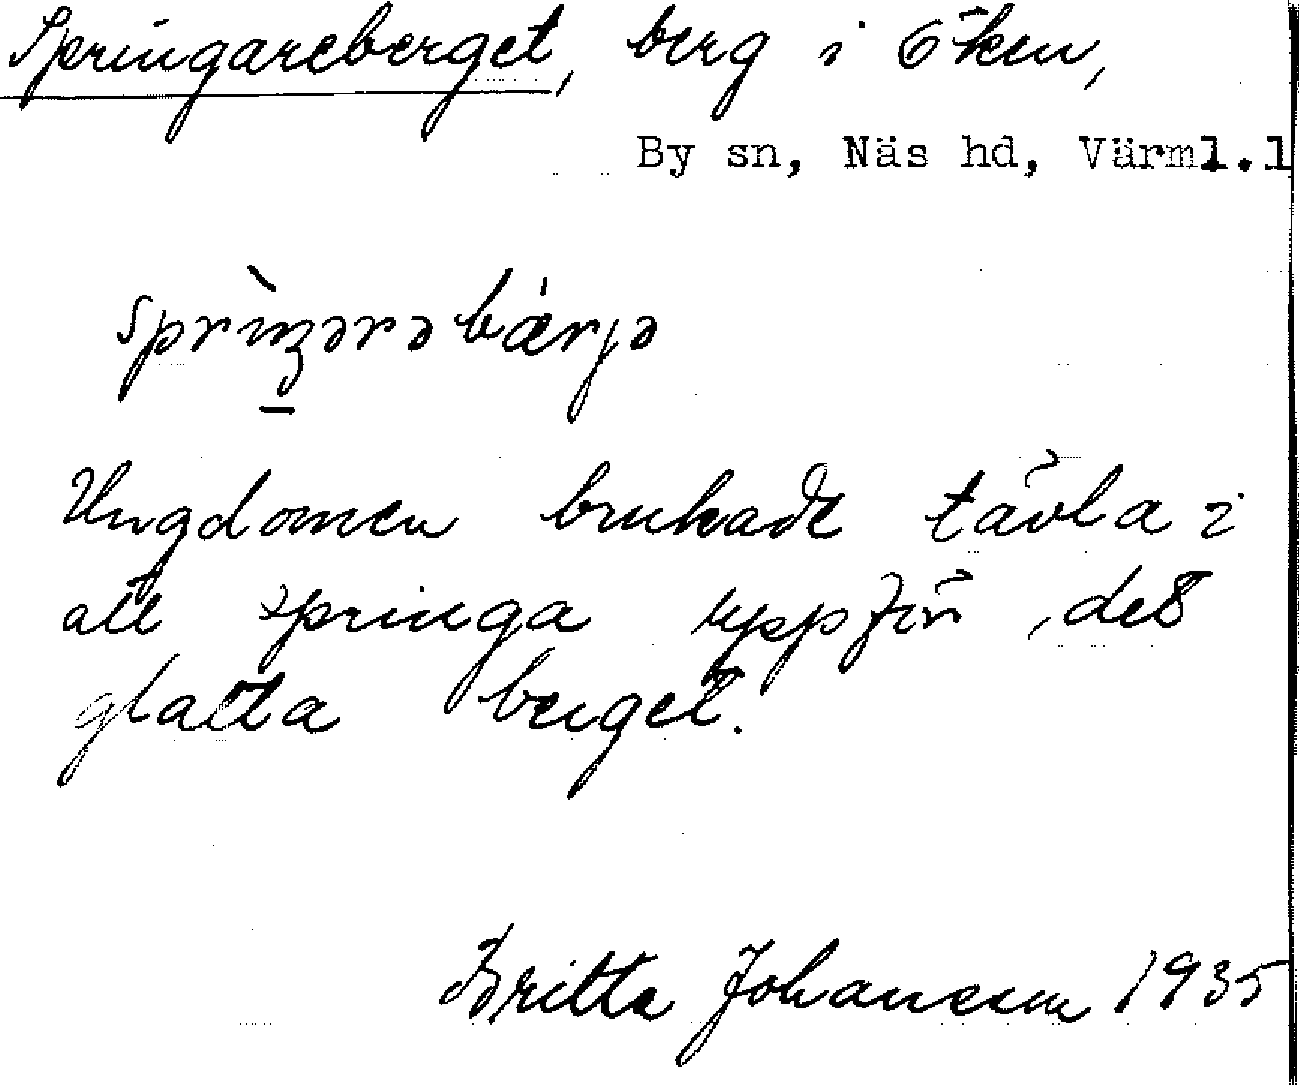 Springareberget, berg i Öken,
By sn, Näs hd, Värml.l
sprìŋərəbæ̀rjə
Ungdomen brukade tävla i
att springa uppför det
glatta berget.
Britta Johansson 1935